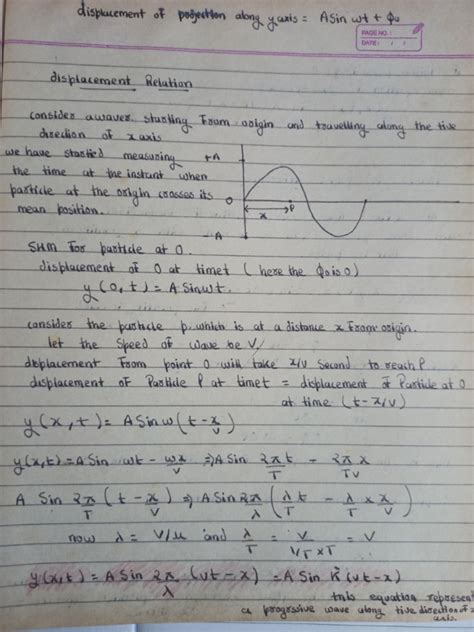 displacement of projection along y axis = A sin wt + ϕ0
PAGE NO.:
DATE: / /
displacement Relation
consider a waver starting from origin and travelling along the tive
direction of x axis
we have started measuring
the time at the instant when
particle at the origin crosses its
mean position.
+A
O
-A
x
P
SHM for particle at O.
displacement of O at time t ( here the ϕ0 is 0 )
y (0, t) = A Sin wt.
consider the particle p. which is at a distance x from origin.
let the speed of wave be V.
displacement from point O will take x/v second to reach P
displacement of Particle P at time t = displacement of Particle at O
at time (t - x/v)
y (x, t) = A Sin w (t - x/v)
y(x,t) = A Sin wt - wx/v ⇒ A Sin 2π/T t - 2π/Tv x
A Sin 2π/T (t - x/v) ⇒ A Sin 2π/λ (λ/T t - λ/T × x/v)
now λ = V/μ and λ/T = V/(1/T × T) = V
y(x,t) = A Sin 2π/λ (vt - x) = A Sin K (vt - x)
this equation represent
a progressive wave along tive direction of x
axis.